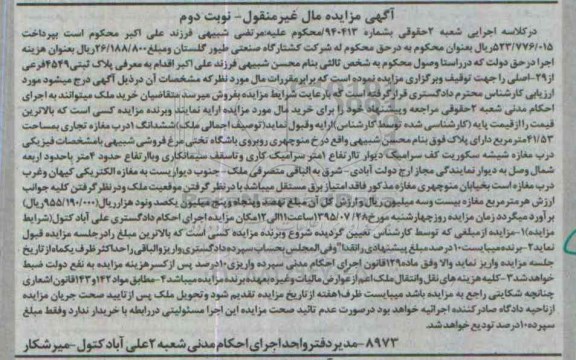 آگهی مزایده مال غیرمنقول- نوبت دوم
درکلاسه اجرایی شعبه ۲حقوقی بشماره ۹۴۰۴۱۳/ محکوم علیه:مرتضی شبیهی فرزند علی اکبر محکوم است بپرداخت
۵۲۳/۷۷۶/۰۱۵ریال بعنوان محکوم به درحق محکوم له شرکت کشتارگاه صنعتی طیور گلستان ومبلغ۲۶/۱۸۸/۸۰۰ریال بعنوان هزینه
اجرا درحق دولت که درراستا وصول محکوم به شخص ثالثی بنام محسن شبیهی فرزند علی اکبر اقدام به معرفی پلاک ثبتی۴۵۴۹فرعی
از۲۹-اصلی را جهت توقیف وبرگزاری مزایده نموده است که برابرمقررات مال مورد نظرکه مشخصات آن درذیل آگهی درج میشود مورد
ارزیابی کارشناس محترم دادگستری قرارگرفته است که بارعایت شرایط مزایده بفروش میرسد متقاضیان خرید ملک میتوانند به اجرای
احکام مدنی شعبه ۲حقوقی مراجعه وپیشنهاد خود را برای خرید مال مورد مزایده ارایه نمایند وبرنده مزایده کسی است که بالاترین
قیمت را ازقیمت پایه (کارشناسی شده توسط کارشناس)ارایه وقبول نماید(توصیف اجمالی ملک)ششدانگ ۱درب مغازه تجاری بمساحت
۴۱/۵۳مترمربع دارای پلاک فوق بنام محسن شبیهی واقع درخ منوچهری روبروی باشگاه تختی مرغ فروشی شبیهی بامشخصات فیزیکی
درب مغازه شیشه سکوریت کف سرامیک دیوار تاارتفاع ۱متر سرامیک کاری وتاسقف سیمانکاری وباارتفاع حدود ۴متر باحدود اربعه
شمال وصل به دیوار نمایندگی مجاز ارج دولت آبادی- شرق به الباقی متصرفی ملک- جنوب دیواریست به مغازه الکتریکی کیهان وغرب
درب مغازه است بخیابان منوچهری مغازه مذکور فاقد امتیاز برق مستقل میباشد با درنظر گرفتن موقعیت ملک ودرنظر گرفتن کلیه جوانب
ارزش هرمترمربع مغازه بیست وسه میلیون ریال وارزش کل آن مبلغ نهصد وپنجاه وپنج میلیون یکصد ونود هزارریال(۹۵۵/۱۹۰/۰۰۰ریال)
برآورد میگردد زمان مزایده روزچهارشنبه مورخ۱۳۹۵/۰۷/۲۸ساعت۱۱الی۱۲مکان مزایده اجرای احکام دادگستری علی آباد کتول(شرایط
مزایده)۱-مزایده ازمبلغی که توسط کارشناس تعیین گردیده شروع وبرنده مزایده کسی است که بالاترین مبلغ رادرجلسه مزایده قبول
نماید۲-برنده میبایست۱۰درصد مبلغ پیشنهادی رانقدا" وفی المجلس بحساب سپرده دادگستری واریزوالباقی را حداکثر ظرف یکماه ازتاریخ
جلسه مزایده واریز نماید والا وفق ماده۱۲۹قانون اجرای احکام مدنی سپرده واریزی۱۰درصد پس ازکسرهزینه مزایده به نفع دولت ضبط
خواهدشد۳-کلیه هزینه های نقل وانتقال ملک اعم ازعوارض مالیات وغیره بعهده برنده مزایده میباشد۴-مطابق مواد۱۴۲و۱۴۳قانون اشعاری
چنانچه شکایتی راجع به مزایده باشد میبایست ظرف۱هفته ازتاریخ مزایده تقدیم شود وتحویل ملک پس ازتایید صحت جریان مزایده
ازناحیه دادگاه صادرکننده اجرائیه خواهد بود درصورت عدم تائید صحت مزایده این اجرا مسئولیتی دررابطه با خریدار ندارد وفقط مبلغ
سپرده۱۰درصد تودیع خواهدشد.
۸۹۷۳-مدیردفترواحداجرای احکام مدنی شعبه ۲علی آباد کتول-میرشکار